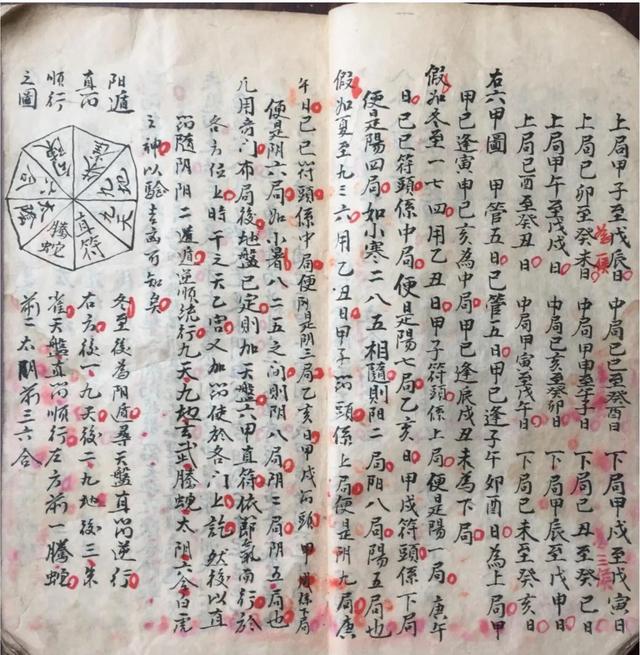 上局甲子至戊辰日 中局己巳至癸酉日 下局甲戌至戊寅日
上局己卯至癸未日 中局甲申至戊子日 下局己丑至癸巳日
上局甲午至戊戌日 中局己亥至癸卯日 下局甲辰至戊申日
上局己酉至癸丑日 中局甲寅至戊午日 下局己未至癸亥日
右六甲圖 甲管五日己管五日甲己逢子午卯酉日為上局甲
甲己逢寅申己亥為中局甲己逢辰戌丑未為下局
假如冬至一七四用乙丑日甲子符頭係上局便是陽一局庚午
日己巳符頭係中局便是陽七局乙亥日甲戌符頭係下局
便是陽四局如小寒二八五相隨則阳二局阳八局陽五局也
假如夏至九三六用乙丑日甲子符頭係上局便是阴九局庚
午日己巳符頭係中局便是阴三局乙亥日甲戌符頭係下局
便是阴六局如小暑八二五之间則阴八局阴二局阴五局也
凡用奇门布局後地盤已定則加天盤六甲直符依即氣而行於
各方位上時干之天乙宫又加符使於各门上訖然後以直
符隨阴阳二遁逆順流行九天九地玄武騰蛇太阴六合白虎
之神以驗吉凶可知矣
阳遁
真符
順行
之圖
直符
騰蛇
太陰
六合
九地
九天
冬至後為阳遁尋天盤直符逆行
右方後一九天後二九地後三朱
雀天盤直符順行左方前一騰蛇
前二太阴前三六合